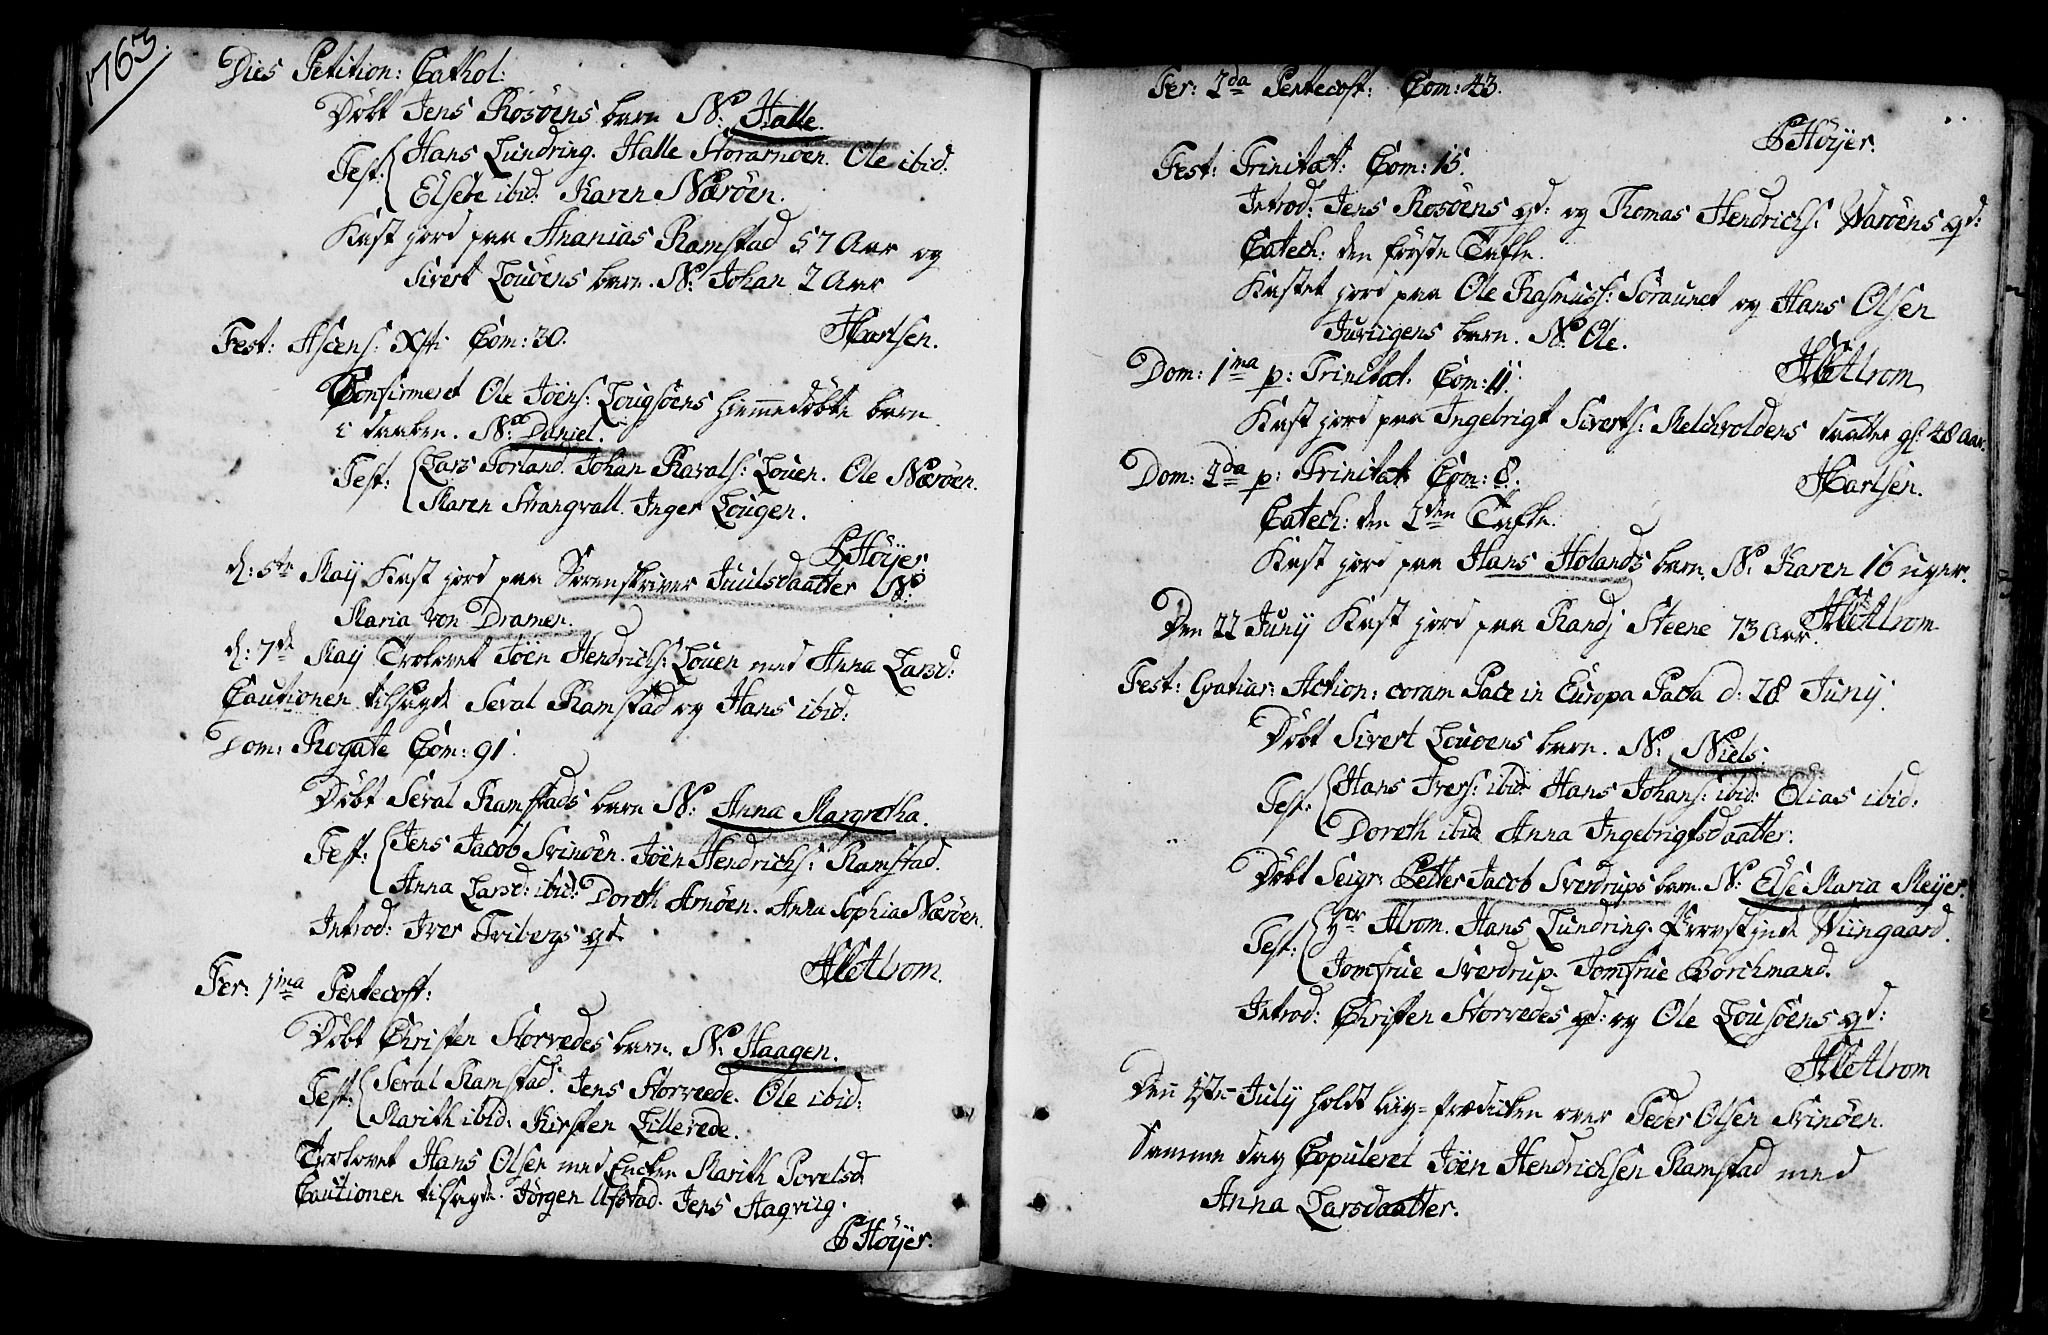 1763.
Dies Petition: Cathol:
Döbt Jens Rosöens barn N: Halle.
Test: Hans Lundring. Halle Storarnöen. Ole ibid:
Elsebe ibid: Karen Næröen.
Kast jord paa Ananias Ramstad 57 Aar og
Sivert Louöens barn. N: Johan 2 Aar
HCarlsen.
Fest: Ascens: Xsti Com: 30.
Confirmeret Ole Joens: Lougsöens hiemmedöbte barn
i Kirken. N: Daniel.
Test: Lars Forland. Johan Louen. Ole Næröen.
Maren Strangvall. Inger Lougen.
Höyer.
d: 5te Maij Kast jord paa Sorenskriver Juulsdaatter N:
Maria von Dramen.
d: 7de Maij Trolovet Joen Hendrichs: Louen med Anna Larsd:
Cautionen tilsagde Seval Ramstad og Hans ibid:
Dom: Rogate Com: 91.
Döbt Seval Ramstads barn N: Anna Margretha.
Test: Jens Jacob Svinöen. Joen Hendrichs: Ramstad.
Anna Larsd: ibid: Doreth Arnöen. Anna Sophia Næröen.
Introd: Iver Friberg qd.
Alrom.
Fer: 1ma Pentecost:
Döbt Christen Storvedes barn. N: Haagen.
Test: Seval Ramstad. Jens Storveede. Ole ibid:
Marith ibid: Kirsten Lillevede.
Trolovet Hans Olsen med Encken Marith Povelsd
Cautionen tilsagde. Jörgen Ufstad. Jens Hagviig.
Höyer.
Fer: 2da Pentecost: Com: 43.
Höyer.
Fest: Trinitat: Com: 15.
Introd: Jens Rosöens qd: og Thomas Hendrichs: Waröens qd:
Catech: den förste Tafle.
Kastet jord paa Ole Rasmuss: Söraunet og Hans Olsen
Juviigens barn. N: Ole.
Alrom
Dom: 1ma p: Trinitat. Com: 11.
Kast jord paa Ingebrigt Siverts: Melchvoldens daatter gl: 48 Aar.
Dom: 2da p: Trinitat Com: 8.
HCarlsen.
Catech: den 2den Tafle.
Kast jord paa Hans Holands barn. N: Karen 16 uger.
Alrom
Den 22 Junij Kast jord paa Randj Steene 73 Aar.
Fest: Gratiar: Action: coram Pace in Europa Pacta d: 28 Junij.
Döbt Sivert Louöens barn. N: Niels.
Test: Hans Ivers: ibid: Hans Johans: ibid: Elias ibid:
Doreth ibid Anna Ingebrigtsdaatter.
Döbt Seigr: Petter Jacob Sverdrups barn. N: Else Maria Meijer.
Test: Hr Alrom. Hans Lundring. Wiingaard.
Jomfrue Sverdrup. Jomfrue Borchmand.
Introd: Christen Storvedes qd: og Ole Lousöens qd:
Alrom
Den July holdt liig-prædicken over Peder Olsen Svinöen.
Samme dag Copuleret Joen Hendrichsen Ramstad med
Anna Larsdaatter.